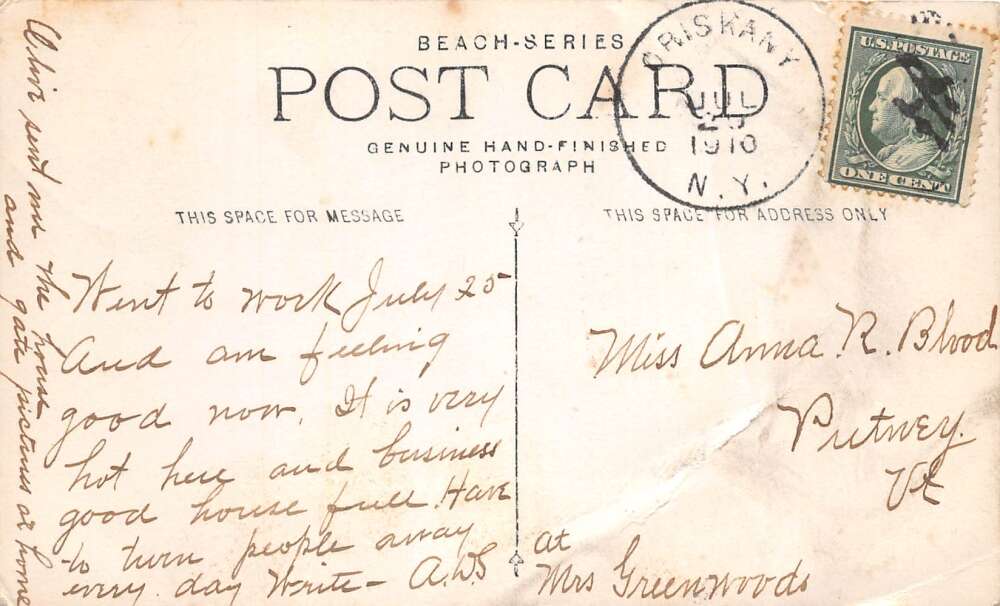 BEACH-SERIES
POST CARD
GENUINE HAND-FINISHED
PHOTOGRAPH
ORISKANY
JUL
1910
N.Y.
U.S. POSTAGE
ONE CENT
THIS SPACE FOR MESSAGE
THIS SPACE FOR ADDRESS ONLY
Went to work July 25
And am feeling
good now. It is very
hot here and business
good house full. Have
to turn people away
every day Write - A.W.S
sent me the house
and gate pictures at home
Miss Anna R. Blood
Putney.
Vt
at
Mrs Greenwoods